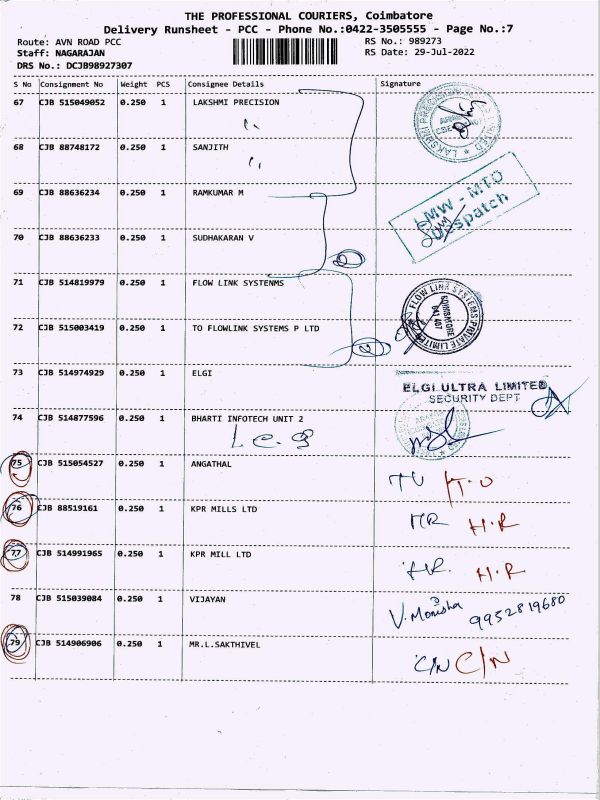 THE PROFESSIONAL COURIERS, Coimbatore
Delivery Runsheet - PCC - Phone No.:0422-3505555 - Page No.:7
Route: AVN ROAD PCC
RS No.: 989273
Staff: NAGARAJAN
RS Date: 29-Jul-2022
DRS No.: DCJB98927307
S No Consignment No Weight PCS Consignee Details Signature
67 CJB 515049052 0.250 1 LAKSHMI PRECISION
68 CJB 88748172 0.250 1 SANJITH
69 CJB 88636234 0.250 1 RAMKUMAR M
LMW - MTO
Despatch
70 CJB 88636233 0.250 1 SUDHAKARAN V
71 CJB 514819979 0.250 1 FLOW LINK SYSTENMS
FLOW LINK SYSTEMS PRIVATE LIMITED
COIMBATORE
641 407
72 CJB 515003419 0.250 1 TO FLOWLINK SYSTEMS P LTD
73 CJB 514974929 0.250 1 ELGI
ELGI ULTRA LIMITED
SECURITY DEPT
74 CJB 514877596 0.250 1 BHARTI INFOTECH UNIT 2
75 CJB 515054527 0.250 1 ANGATHAL
76 CJB 88519161 0.250 1 KPR MILLS LTD
H.R
77 CJB 514991965 0.250 1 KPR MILL LTD
HR. H.R
78 CJB 515039084 0.250 1 VIJAYAN
V. Monisha 9952819680
79 CJB 514906906 0.250 1 MR.L.SAKTHIVEL
C/N C/N